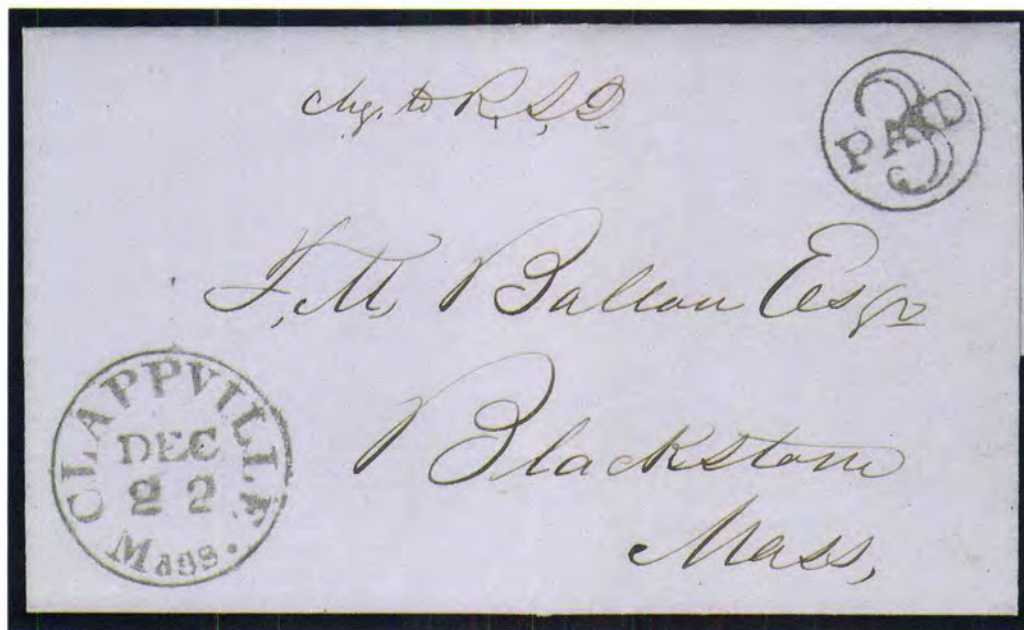 chg. to R. S. D.
PAID
3
F. M. Ballou Esqr
Blackstone
Mass,
CLAPPVILLE
DEC
22
Mass.